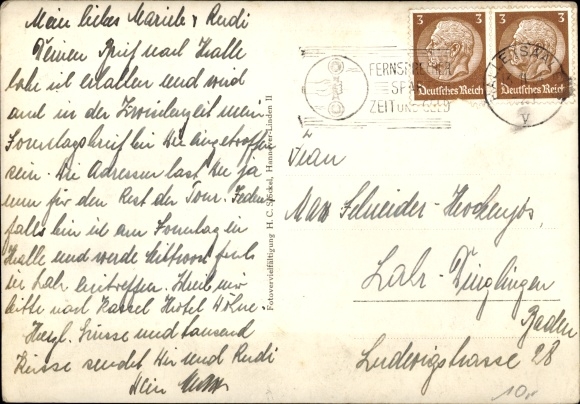 Mein liebes Mariele & Rudi
Deinen Brief nach Halle
habe ich erhalten und wird
auch in der Zwischenzeit mein
Sonntagsbrief bei Dir eingetroffen
sein. Die Adressen hast Du ja
nun für den Rest der Tour. Jeden-
falls bin ich am Sonntag in
Halle und werde Mittwoch früh
in Lahr eintreffen. Schreib mir
bitte nach Kassel Hotel
Herzl. Grüsse und tausend
Küsse sendet Dir und Rudi
Dein Max
Fotovervielfältigung H. C. Stöckel, Hannover-Linden II
3 3
Deutsches Reich
3 3
Deutsches Reich
FERNSPRECHER
SPART
ZEIT UND GELD
Frau
Max Schneider
Lahr-Dinglingen
Baden
Ludwigstrasse 28
10,-